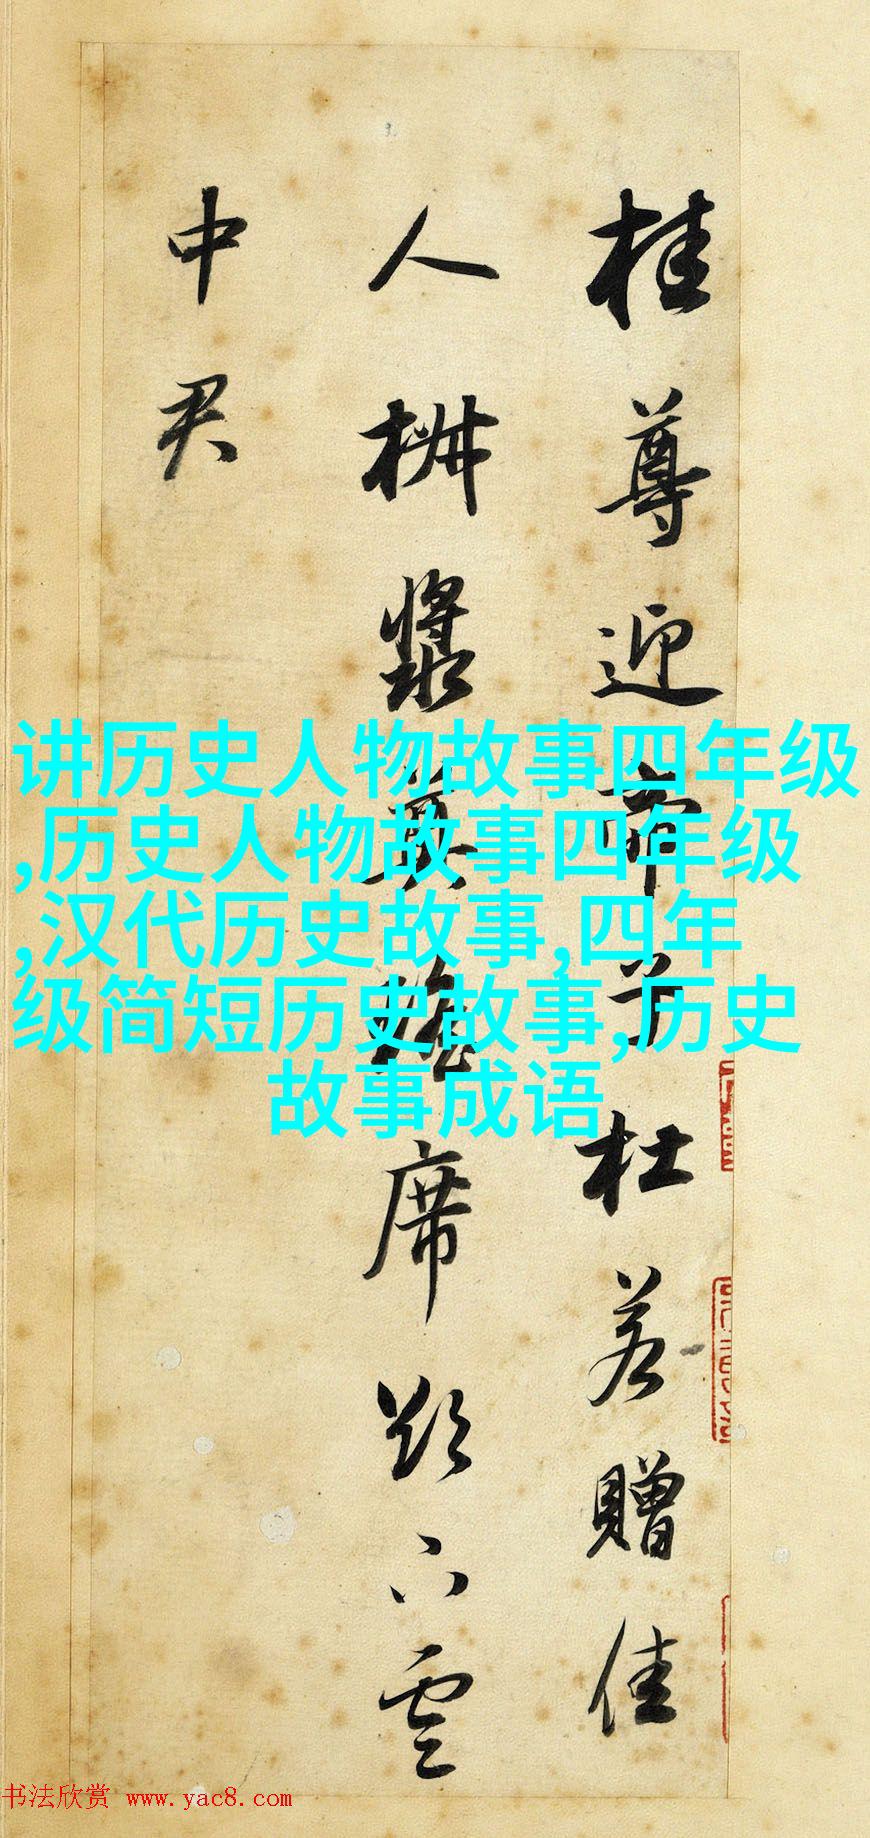 桂尊迎帝子杜若贈佳
人椒漿奠瑤席欲下雲
中君
讲历史人物故事四年级
,历史人物故事四年级
,汉代历史故事,四年
级简短历史故事,历史
故事成语
书法欣赏 www.yac8.com